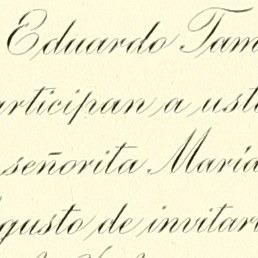 Eduardo Tam
articipan a uste
señorita María
gusto de invitar